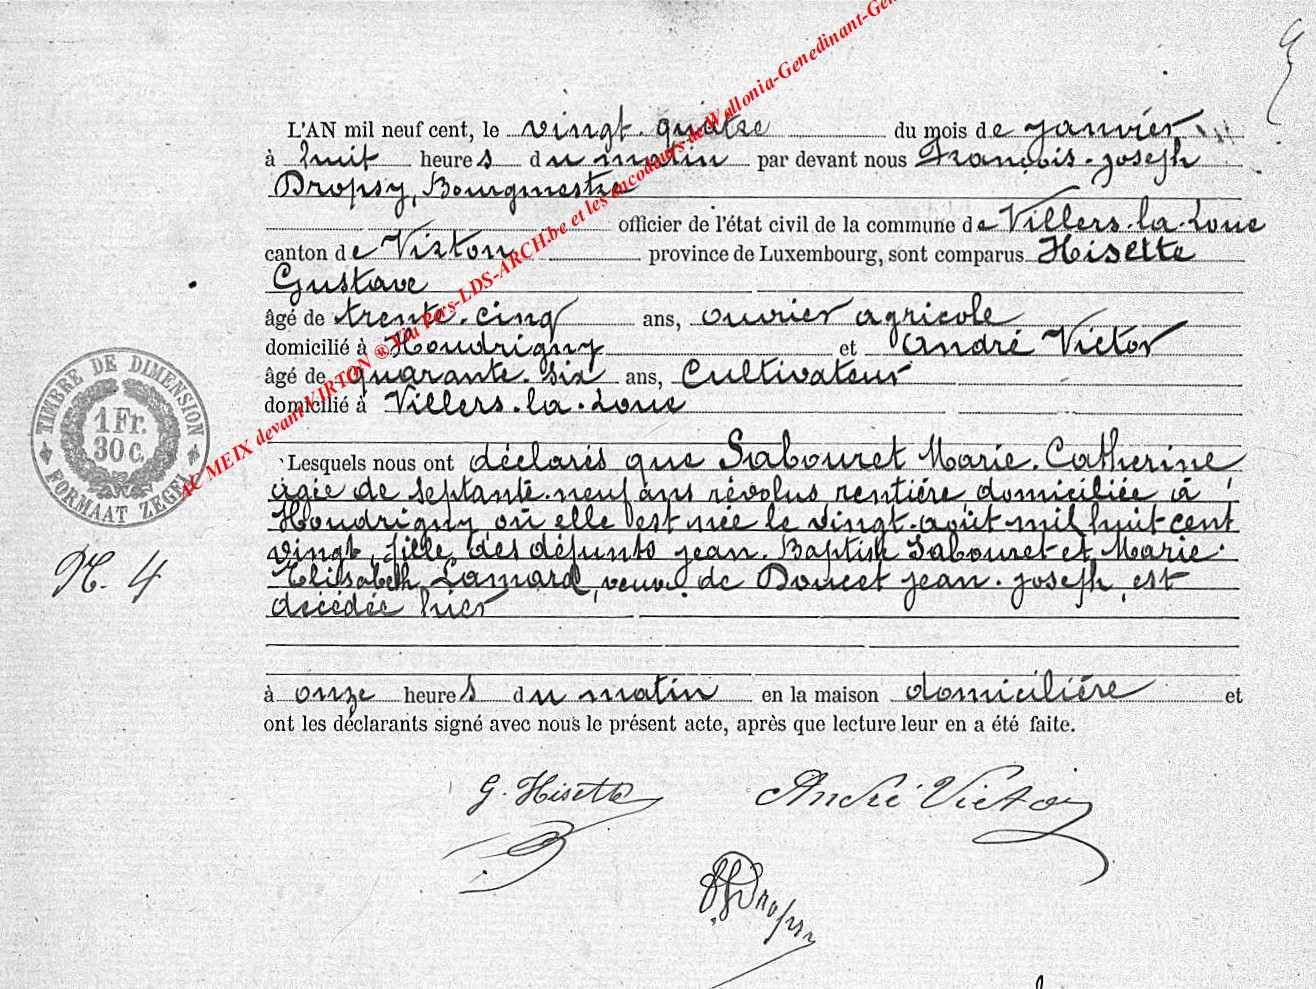 L'AN mil neuf cent, le vingt-quatre du mois de janvier
à huit heures du matin par devant nous François-Joseph
Dropsy, Bourgmestre
officier de l'état civil de la commune de Villers-la-Loue
canton de Virton province de Luxembourg, sont comparus Hisette
Gustave
âgé de trente-cinq ans, ouvrier agricole
domicilié à Houdrigny et André Victor
âgé de quarante-six ans, Cultivateur
domicilié à Villers-la-Loue
Lesquels nous ont déclarés que Sabouret Marie-Catherine
âgée de septante-neuf ans révolus rentière domiciliée à
Houdrigny où elle est née le vingt-août mil huit cent
vingt, fille des défunts Jean-Baptiste Sabouret et Marie-
Elisabeth Lamard, veuve de Doucet Jean-Joseph, est
décédée hier
à onze heures du matin en la maison domicilière et
ont les déclarants signé avec nous le présent acte, après que lecture leur en a été faite.
G. Hisette André Victor
Dropsy
TIMBRE DE DIMENSION
1 Fr.
30 C.
FORMAAT ZEGEL
N. 4
AC MEIX devant VIRTON ® Via Pers-LDS-ARCH.be et les encodeurs de Wallonia-Genedinant-Gen